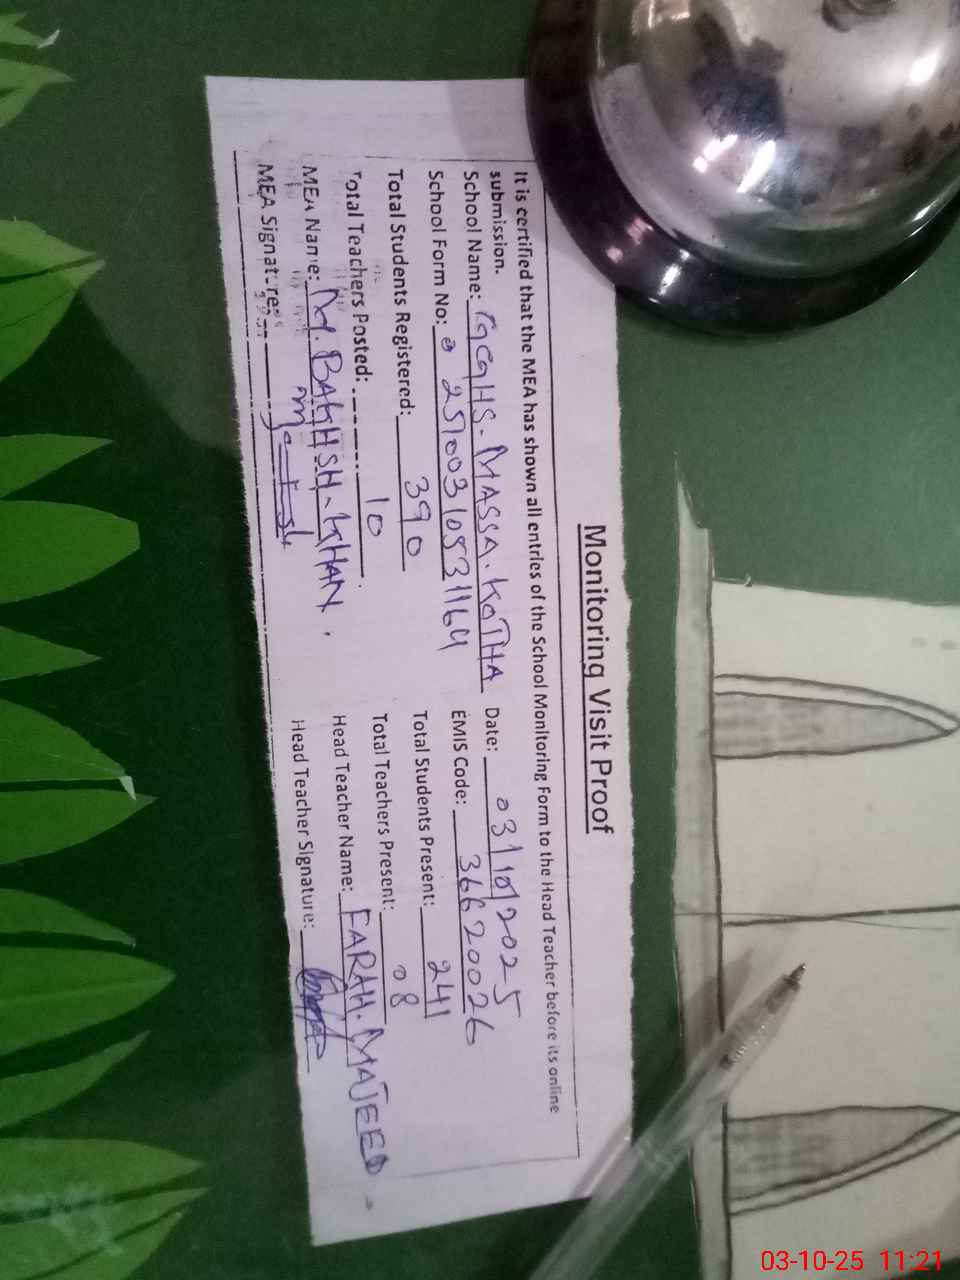 Monitoring Visit Proof
It is certified that the MEA has shown all entries of the School Monitoring Form to the Head Teacher before its online
submission.
School Name: GGHS. MASSA. KOTHA Date: 03/10/2025
School Form No: 25100310831164 EMIS Code: 36620026
Total Students Registered: 390 Total Students Present: 241
Total Teachers Posted: 10 Total Teachers Present: 08
MEA Name: M. BAKHSH. KHAN. Head Teacher Name: FARAH. MAJEED
MEA Signature: Head Teacher Signature:
03-10-25 11:21